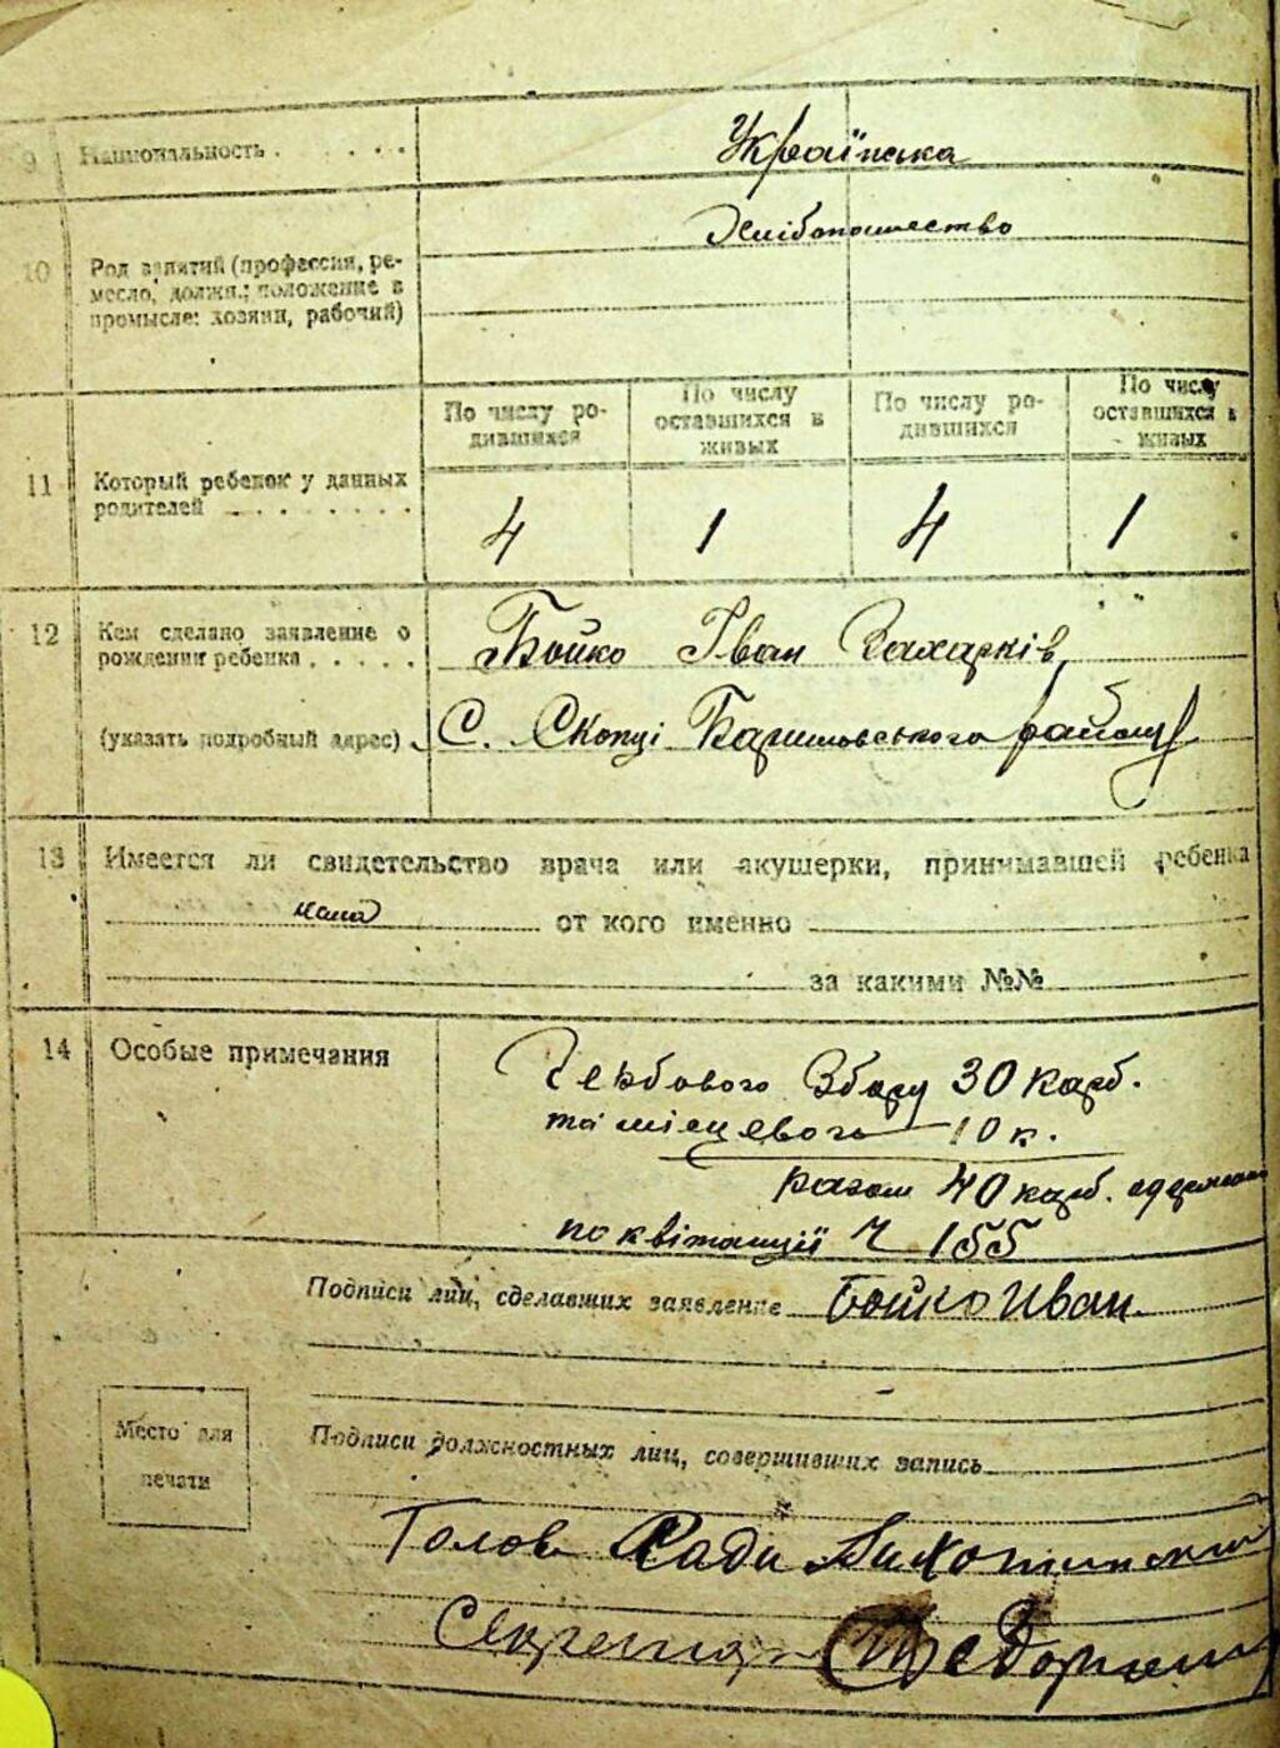 9 Национальность . . . . . Українська
Хлібопашество
10 Род занятий (профессия, ре-
месло, должн.; положение в
промысле: хозяин, рабочий)
По числу ро-
дившихся
По числу
оставшихся в
живых
По числу ро-
дившихся
По числу
оставшихся в
живых
11 Который ребенок у данных
родителей . . . . . . . .
4 1 4 1
12 Кем сделано заявление о
рождении ребенка . . . . . Бойко Іван Захарків,
(указать подробный адрес) . С. Скопці Баришовського району
13 Имеется ли свидетельство врача или акушерки, принимавшей ребенка
от кого именно
за какими №№
14 Особые примечания
Гербового Збору 30 карб.
та місцевого — 10 к.
разом 40 карб.
по квітанції Ч 155
Подписи лиц, сделавших заявление Бойко Иван.
Место для
печати
Подписи должностных лиц, совершивших запись
Голова Ради
Секретар